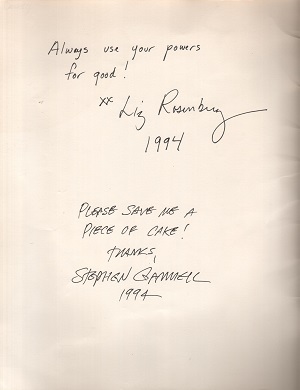 Always use your powers
for good!
xx Liz Rosenberg
1994
PLEASE SAVE ME A
PIECE OF CAKE!
THANKS,
STEPHEN GAMMELL
1994